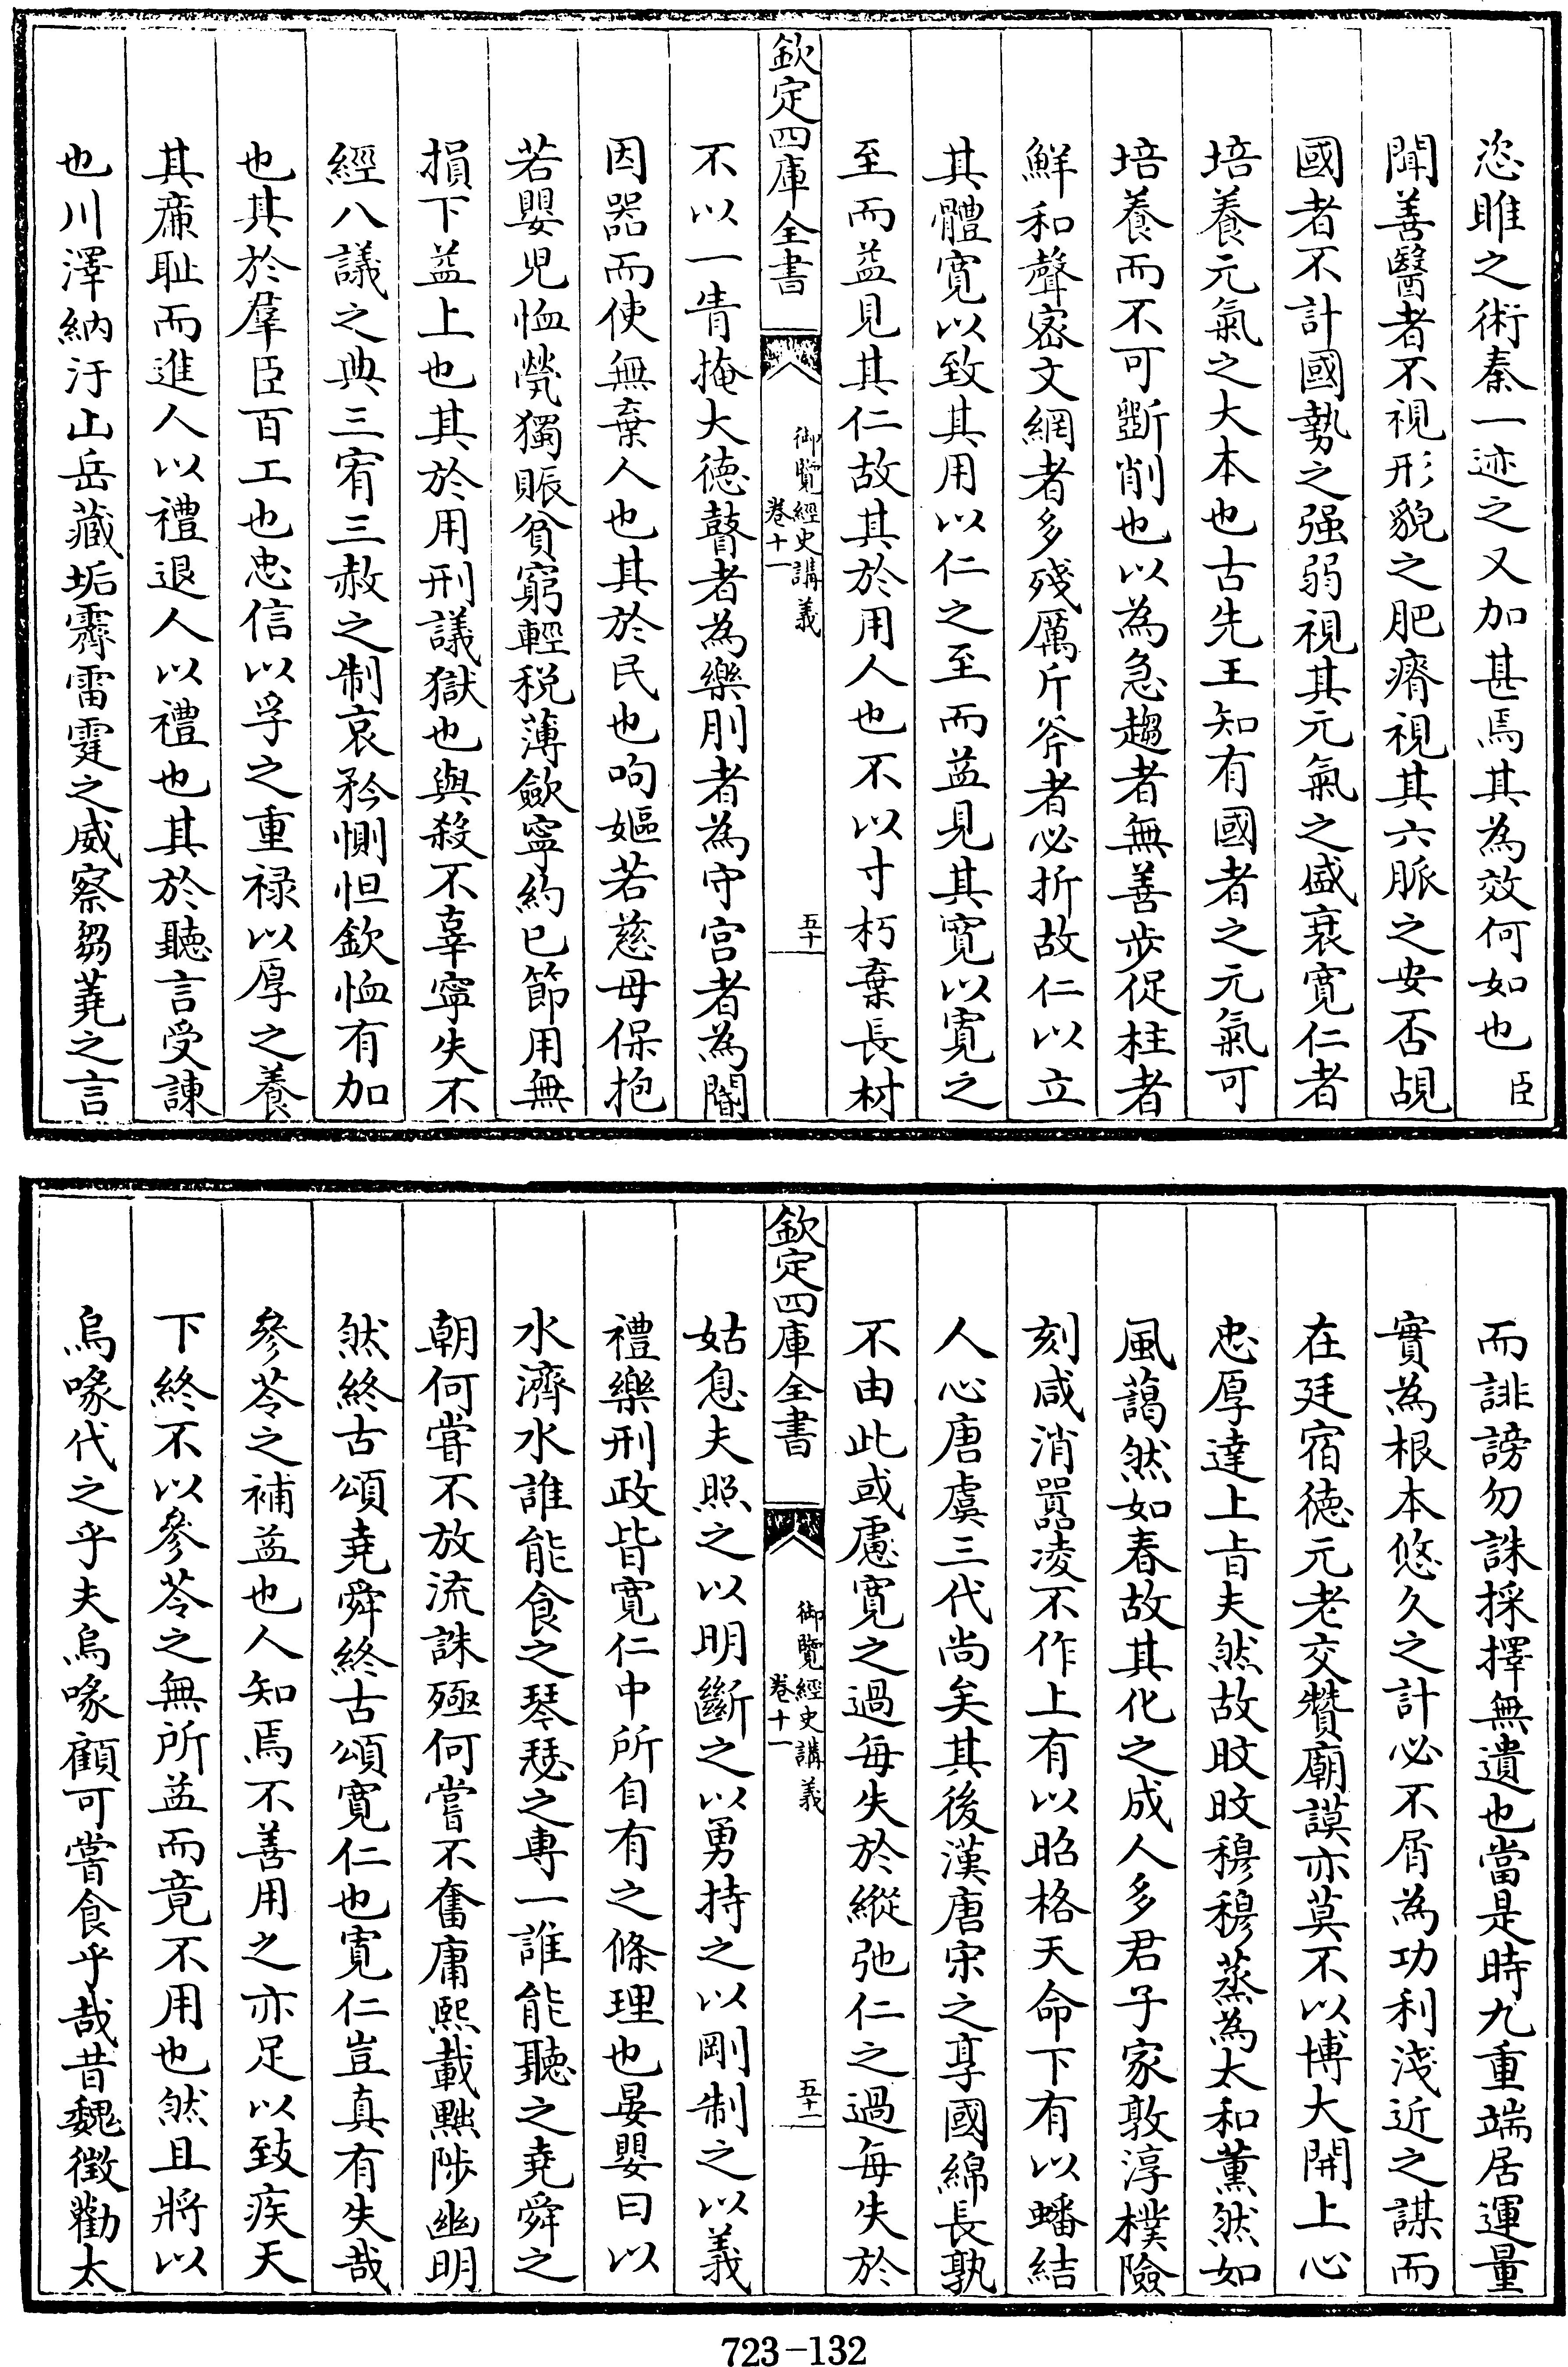 恣睢之術秦一迹之又加甚焉其為效何如也臣
聞善醫者不視形貌之肥瘠視其六脈之安否覘
國者不計國勢之强弱視其元氣之盛衰寛仁者
培養元氣之大本也古先王知有國者之元氣可
培養而不可斵削也以為急趨者無善步促柱者
鮮和聲宻文網者多殘厲斤斧者必折故仁以立
其體寛以致其用以仁之至而益見其寛以寛之
至而益見其仁故其於用人也不以寸朽棄長材
欽定四庫全書
御覽經史講義
卷十一
五十
不以一眚掩大德瞽者為樂刖者為守宫者為閽
因器而使無棄人也其於民也呴嫗若慈母保抱
若嬰児恤煢獨賑貧窮輕税薄歛寧約已節用無
損下益上也其於用刑議獄也與殺不辜寧失不
經八議之典三宥三赦之制哀矜惻怛欽恤有加
也其於羣臣百工也忠信以孚之重禄以厚之養
其亷耻而進人以禮退人以禮也其於聽言受諫
也川澤納汙山岳藏垢霽雷霆之威察芻蕘之言
而誹謗勿誅採擇無遺也當是時九重端居運量
實為根本悠久之計必不屑為功利淺近之謀而
在廷宿德元老交贊廟謨亦莫不以博大開上心
忠厚達上㫖夫然故旼旼穆穆蒸為太和薫然如
風藹然如春故其化之成人多君子家敦淳樸險
刻咸消嚚凌不作上有以昭格天命下有以蟠結
人心唐虞三代尚矣其後漢唐宋之享國綿長孰
不由此或慮寛之過每失於縱弛仁之過每失於
欽定四庫全書
御覽經史講義
卷十一
五十一
姑息夫照之以明斷之以勇持之以剛制之以義
禮樂刑政皆寛仁中所自有之條理也晏嬰曰以
水濟水誰能食之琴瑟之專一誰能聽之堯舜之
朝何嘗不放流誅殛何嘗不奮庸熙載黜陟幽明
然終古頌堯舜終古頌寛仁也寛仁豈真有失哉
參苓之補益也人知焉不善用之亦足以致疾天
下終不以參苓之無所益而竟不用也然且將以
烏喙代之乎夫烏喙顧可嘗食乎哉昔魏徵勸太
723-132